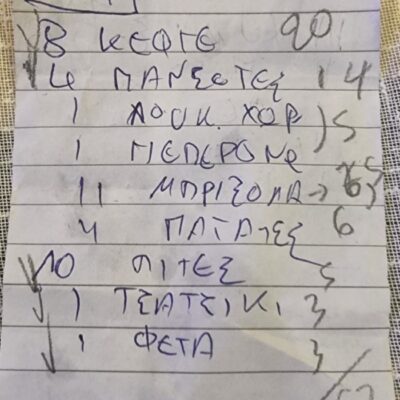 8 ΚΕΦΤΕ 20
4 ΠΑΝΣΕΤΕΣ 14
1 ΛΟΥΚ. ΧΩΡ 5
1 ΠΕΠΕΡΟΝΙ
11 ΜΠΡΙΖΟΛΑ
4 ΠΑΤΑΤΕΣ 6
10 ΠΙΤΕΣ 5
1 ΤΣΑΤΣΙΚΙ 3
1 ΦΕΤΑ 3